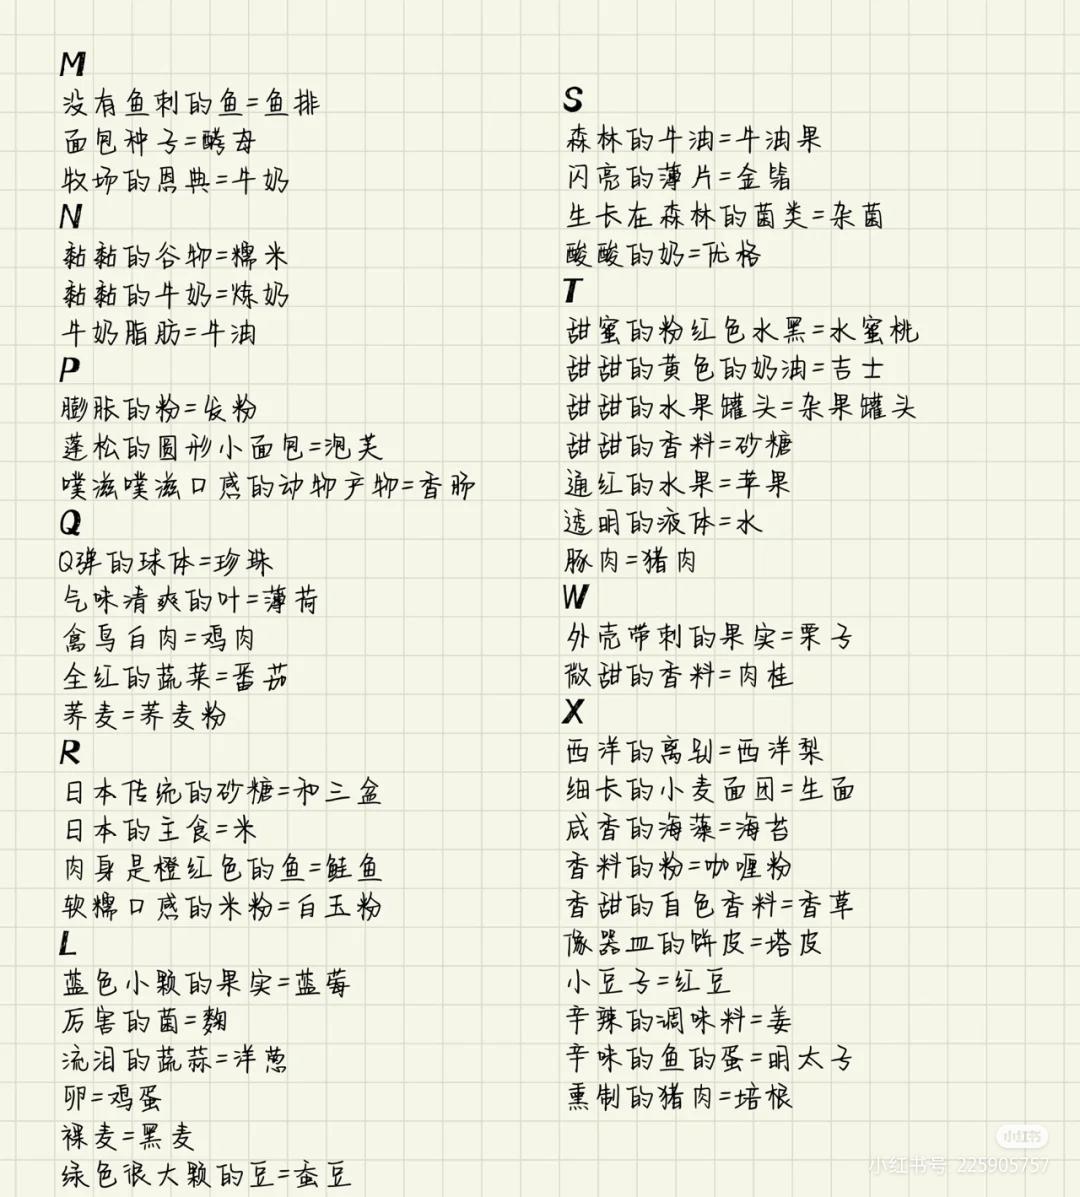 M
没有鱼刺的鱼=鱼排
面包种子=酵母
牧场的恩典=牛奶
N
黏黏的谷物=糯米
黏黏的牛奶=炼奶
牛奶脂肪=牛油
P
膨胀的粉=发粉
蓬松的圆形小面包=泡芙
噗滋噗滋口感的动物产物=香肠
Q
Q弹的球体=珍珠
气味清爽的叶=薄荷
禽鸟白肉=鸡肉
全红的蔬菜=番茄
荞麦=荞麦粉
R
日本传统的砂糖=和三盆
日本的主食=米
肉身是橙红色的鱼=鲑鱼
软糯口感的米粉=白玉粉
L
蓝色小颗的果实=蓝莓
厉害的菌=麴
流泪的蔬蒜=洋葱
卵=鸡蛋
裸麦=黑麦
绿色很大颗的豆=蚕豆
S
森林的牛油=牛油果
闪亮的薄片=金箔
生长在森林的菌类=杂菌
酸酸的奶=优格
T
甜蜜的粉红色水黑=水蜜桃
甜甜的黄色的奶油=吉士
甜甜的水果罐头=杂果罐头
甜甜的香料=砂糖
通红的水果=苹果
透明的液体=水
豚肉=猪肉
W
外壳带刺的果实=栗子
微甜的香料=肉桂
X
西洋的离别=西洋梨
细长的小麦面团=生面
咸香的海藻=海苔
香料的粉=咖喱粉
香甜的自色香料=香草
像器皿的饼皮=塔皮
小豆子=红豆
辛辣的调味料=姜
辛味的鱼的蛋=明太子
熏制的猪肉=培根
小红书
小红书号 225905757